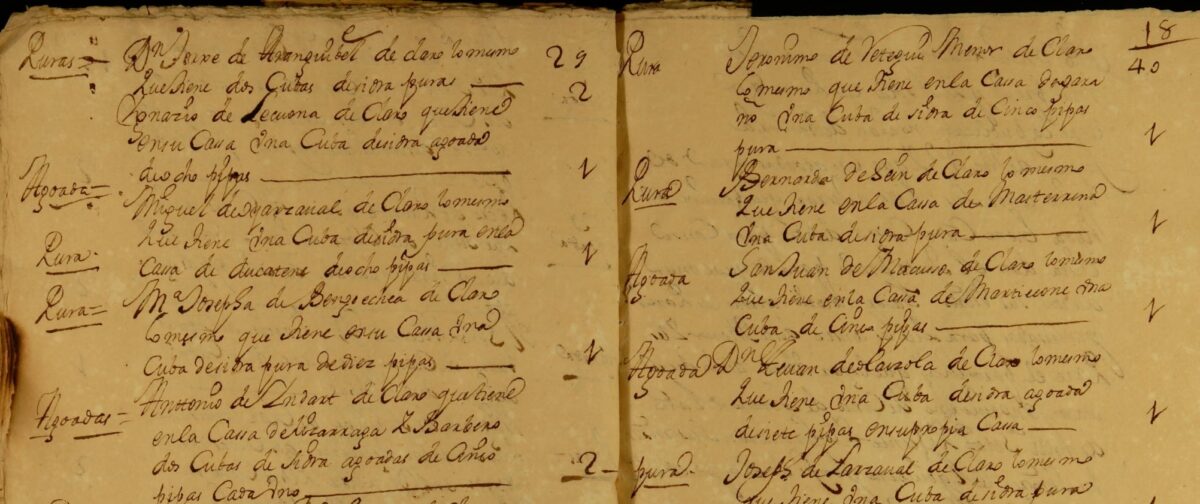 Puras = Dn Felipe de Aranguibel de claro lo mismo 29
Que tiene dos Cubas desidra puras 2
Ygnazio de Lecuona de Claro que tiene
ensu Cassa Vna Cuba desidra agoada
deocho pipas 1
Agoada = Miguel de Yarzaval de Claro lo mesmo
Que tiene Vna Cuba desidra pura enla
Pura. Cassa de ducatene deocho pipas 1
Pura = Ma Josepha de Bengoechea de Claro
lo mesmo que tiene ensu Cassa Vna
Cuba desidra pura dediez pipas 1
Agoadas = Anttonio de Lndart de Claro que tiene
enla Cassa de Lizarraga Barbero
dos Cubas de sidra agoadas de Cinco
pipas Cada Vno 2
18
Pura Jeronimo de Menor de Claro 40
lo mesmo que tiene enla Cassa
no Vna Cuba de sidra de Cinco pipas
pura 1
Pura Bernarda de Claro lo mesmo
Que tiene enla Cassa de
Vna Cuba desidra pura 1
Agoada San Juan de de Claro lo mesmo
Que tiene enla Cassa de Vna
Cuba de Cinco pipas 1
Agoada Dn Juan de Claro lo mesmo
Que tiene Vna Cuba desidra agoada
desiete pipas ensu propia Cassa 1
pura. Joseph de Larzaval de Claro lo mesmo
que tiene Vna Cuba desidra pura